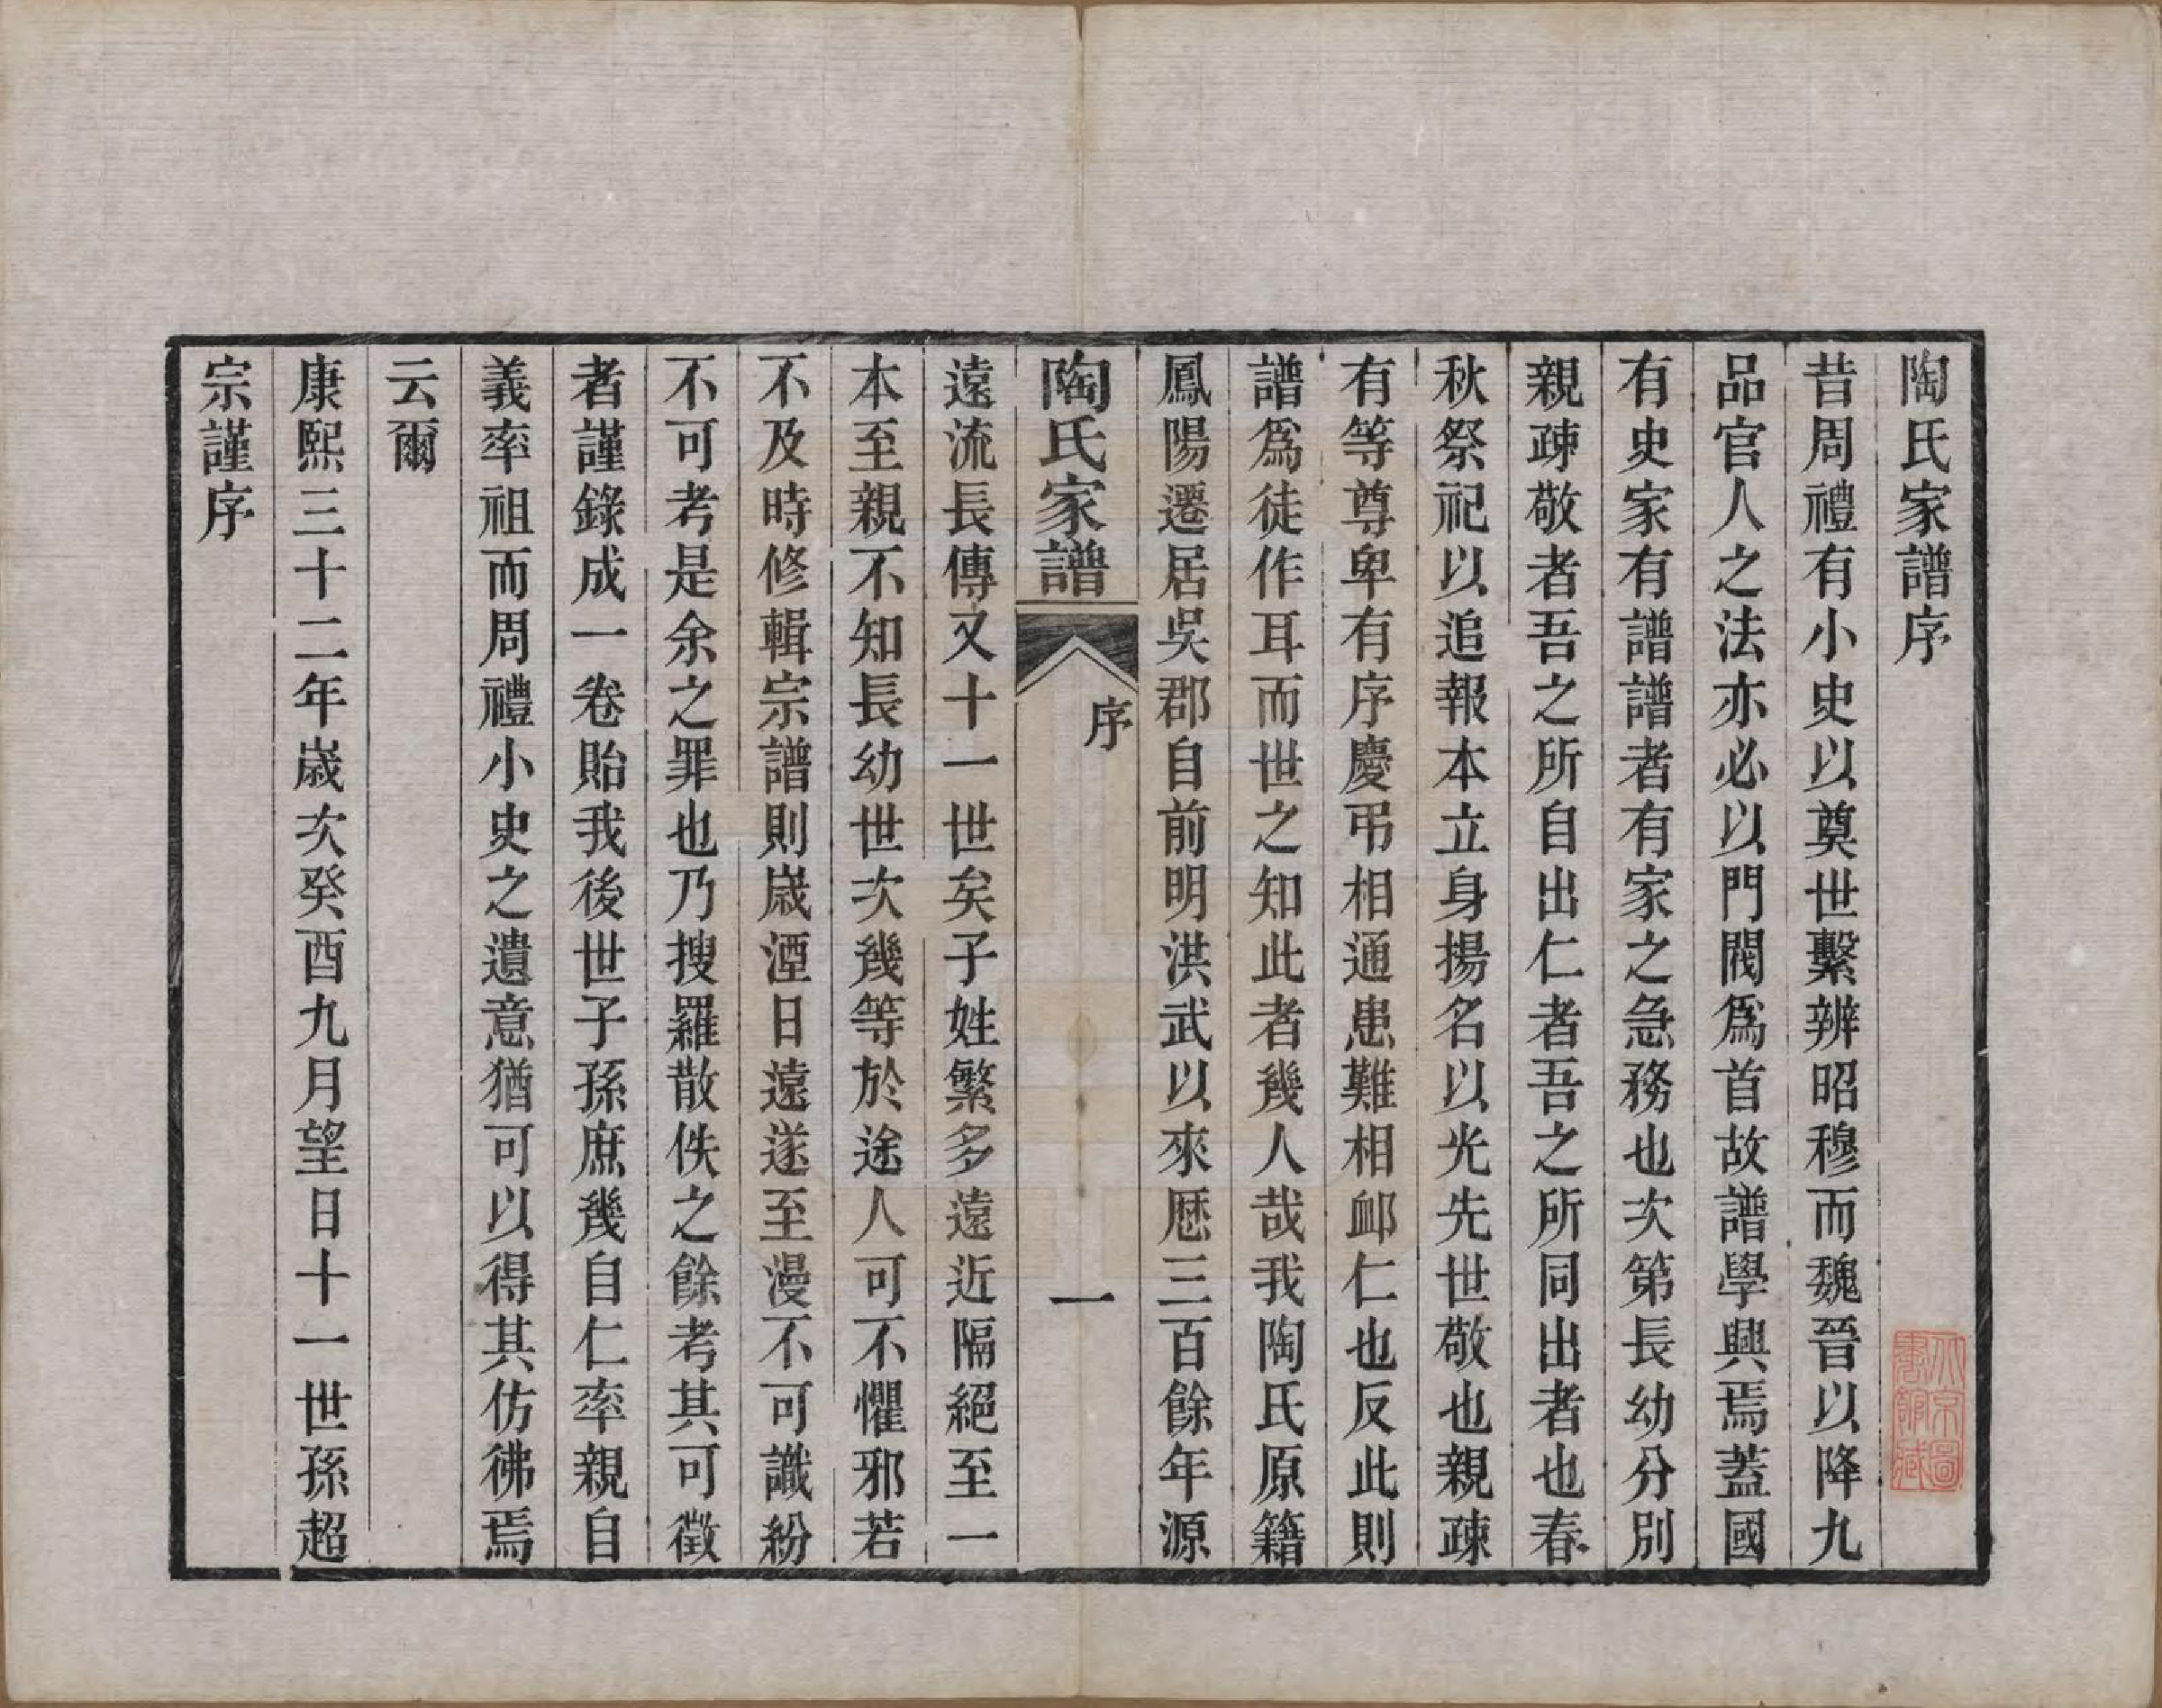 陶氏家譜序
昔周禮有小史以奠世繫辨昭穆而魏晉以降九
品官人之法亦必以門閥爲首故譜學興焉蓋國
有史家有譜譜者有家之急務也次第長幼分別
親疎敬者吾之所自出仁者吾之所同出者也春
秋祭祀以追報本立身揚名以光先世敬也親疎
有等尊卑有序慶弔相通患難相卹仁也反此則
譜爲徒作耳而世之知此者幾人哉我陶氏原籍
鳳陽遷居吳郡自前明洪武以來歷三百餘年源
陶氏家譜
序
一
遠流長傳又十一世矣子姓繁多遠近隔絕至一
本至親不知長幼世次幾等於途人可不懼邪若
不及時修輯宗譜則歲湮日遠遂至漫不可識紛
不可考是余之罪也乃搜羅散佚之餘考其可徵
者謹錄成一卷貽我後世子孫庶幾自仁率親自
義率祖而周禮小史之遺意猶可以得其仿彿焉
云爾
康熙三十二年歲次癸酉九月望日十一世孫超
宗謹序